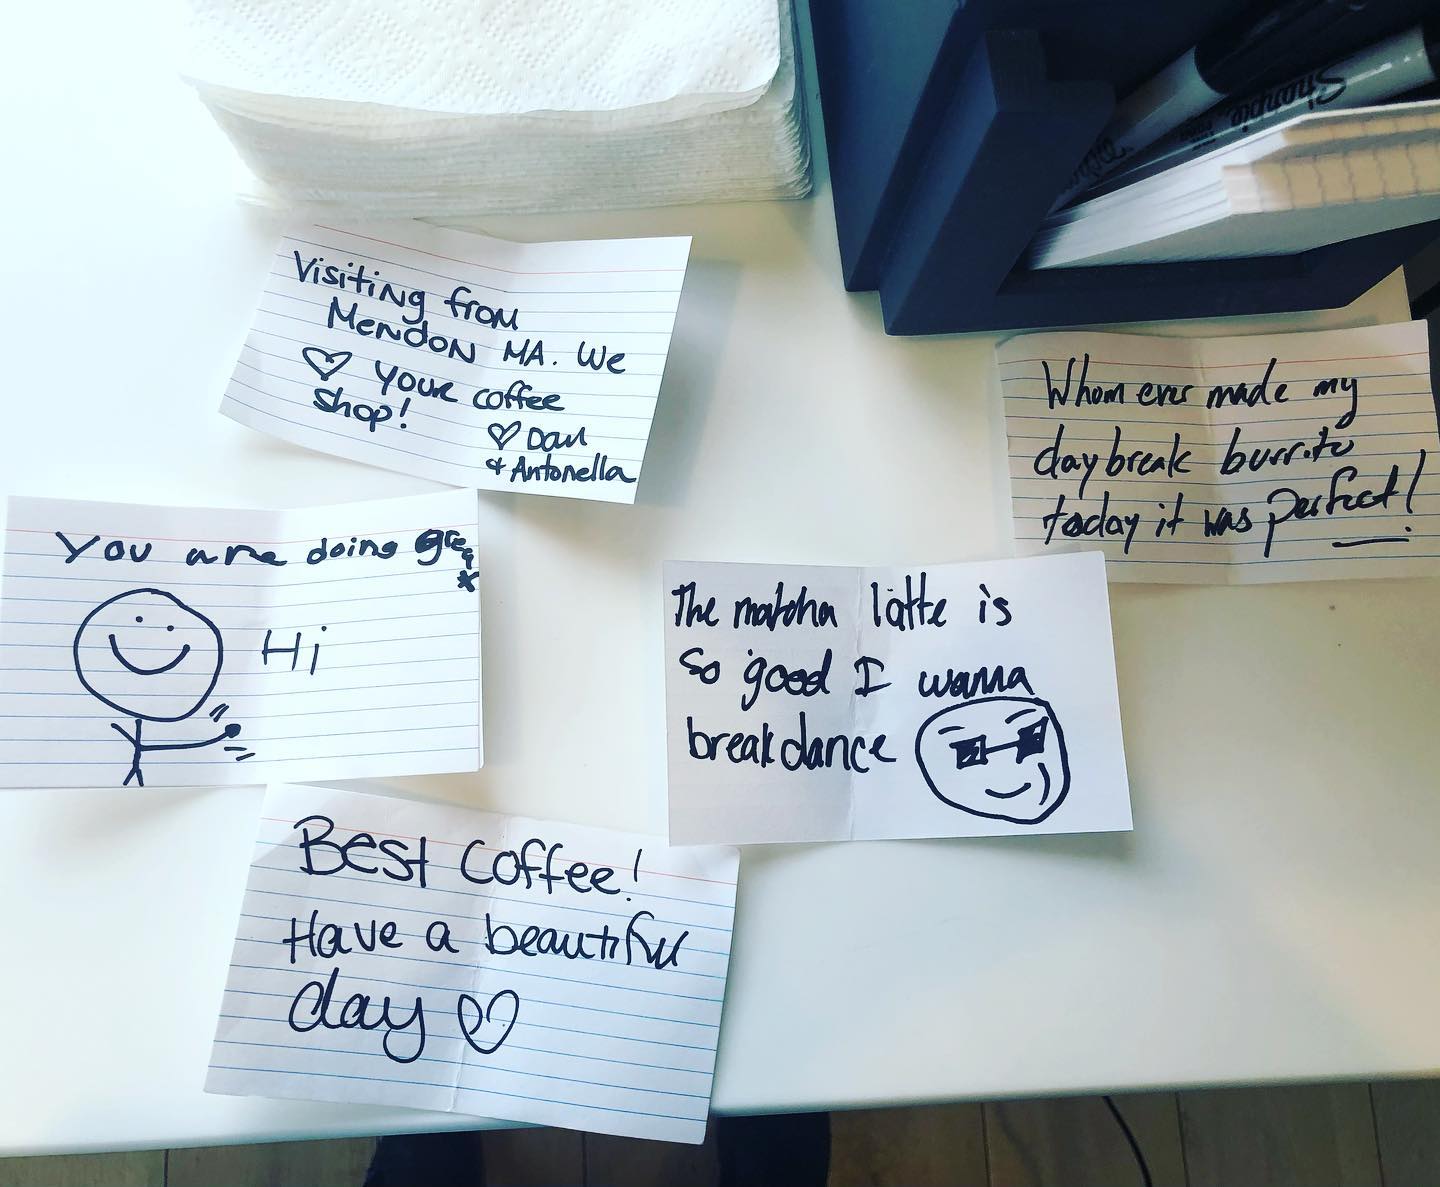 Sharpie
Visiting from
Mendon MA. We
♡ your coffee
shop!
♡ Dan
& Antonella
Whom ever made my
daybreak burrito
today it was perfect!
You are doing great
Hi
The matcha latte is
so good I wanna
breakdance
Best Coffee!
Have a beautiful
day ♡